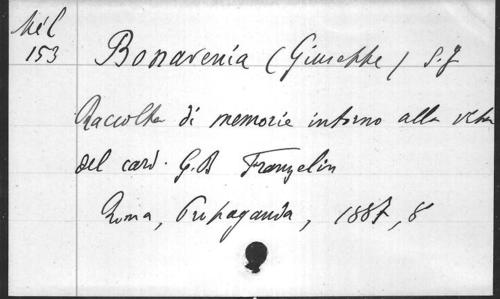 Mél
153
Bonavenia (Giuseppe) S.J
Raccolta di memorie intorno alla vita
del card. G.B Franzelin
Roma, Propaganda, 1887, 8°